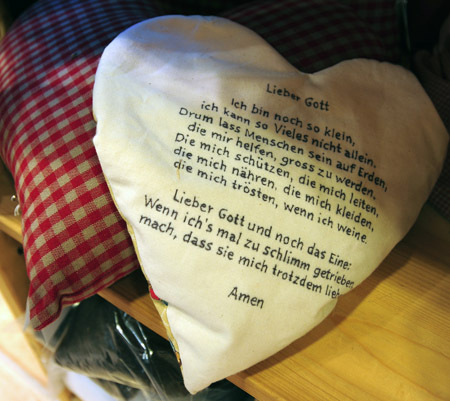 Lieber Gott
Ich bin noch so klein,
ich kann so Vieles nicht allein.
Drum lass Menschen sein auf Erden,
die mir helfen, gross zu werden,
Die mich schützen, die mich leiten,
die mich nähren, die mich kleiden,
die mich trösten, wenn ich weine.
Lieber Gott und noch das Eine:
Wenn ich's mal zu schlimm getrieben,
mach, dass sie mich trotzdem
Amen